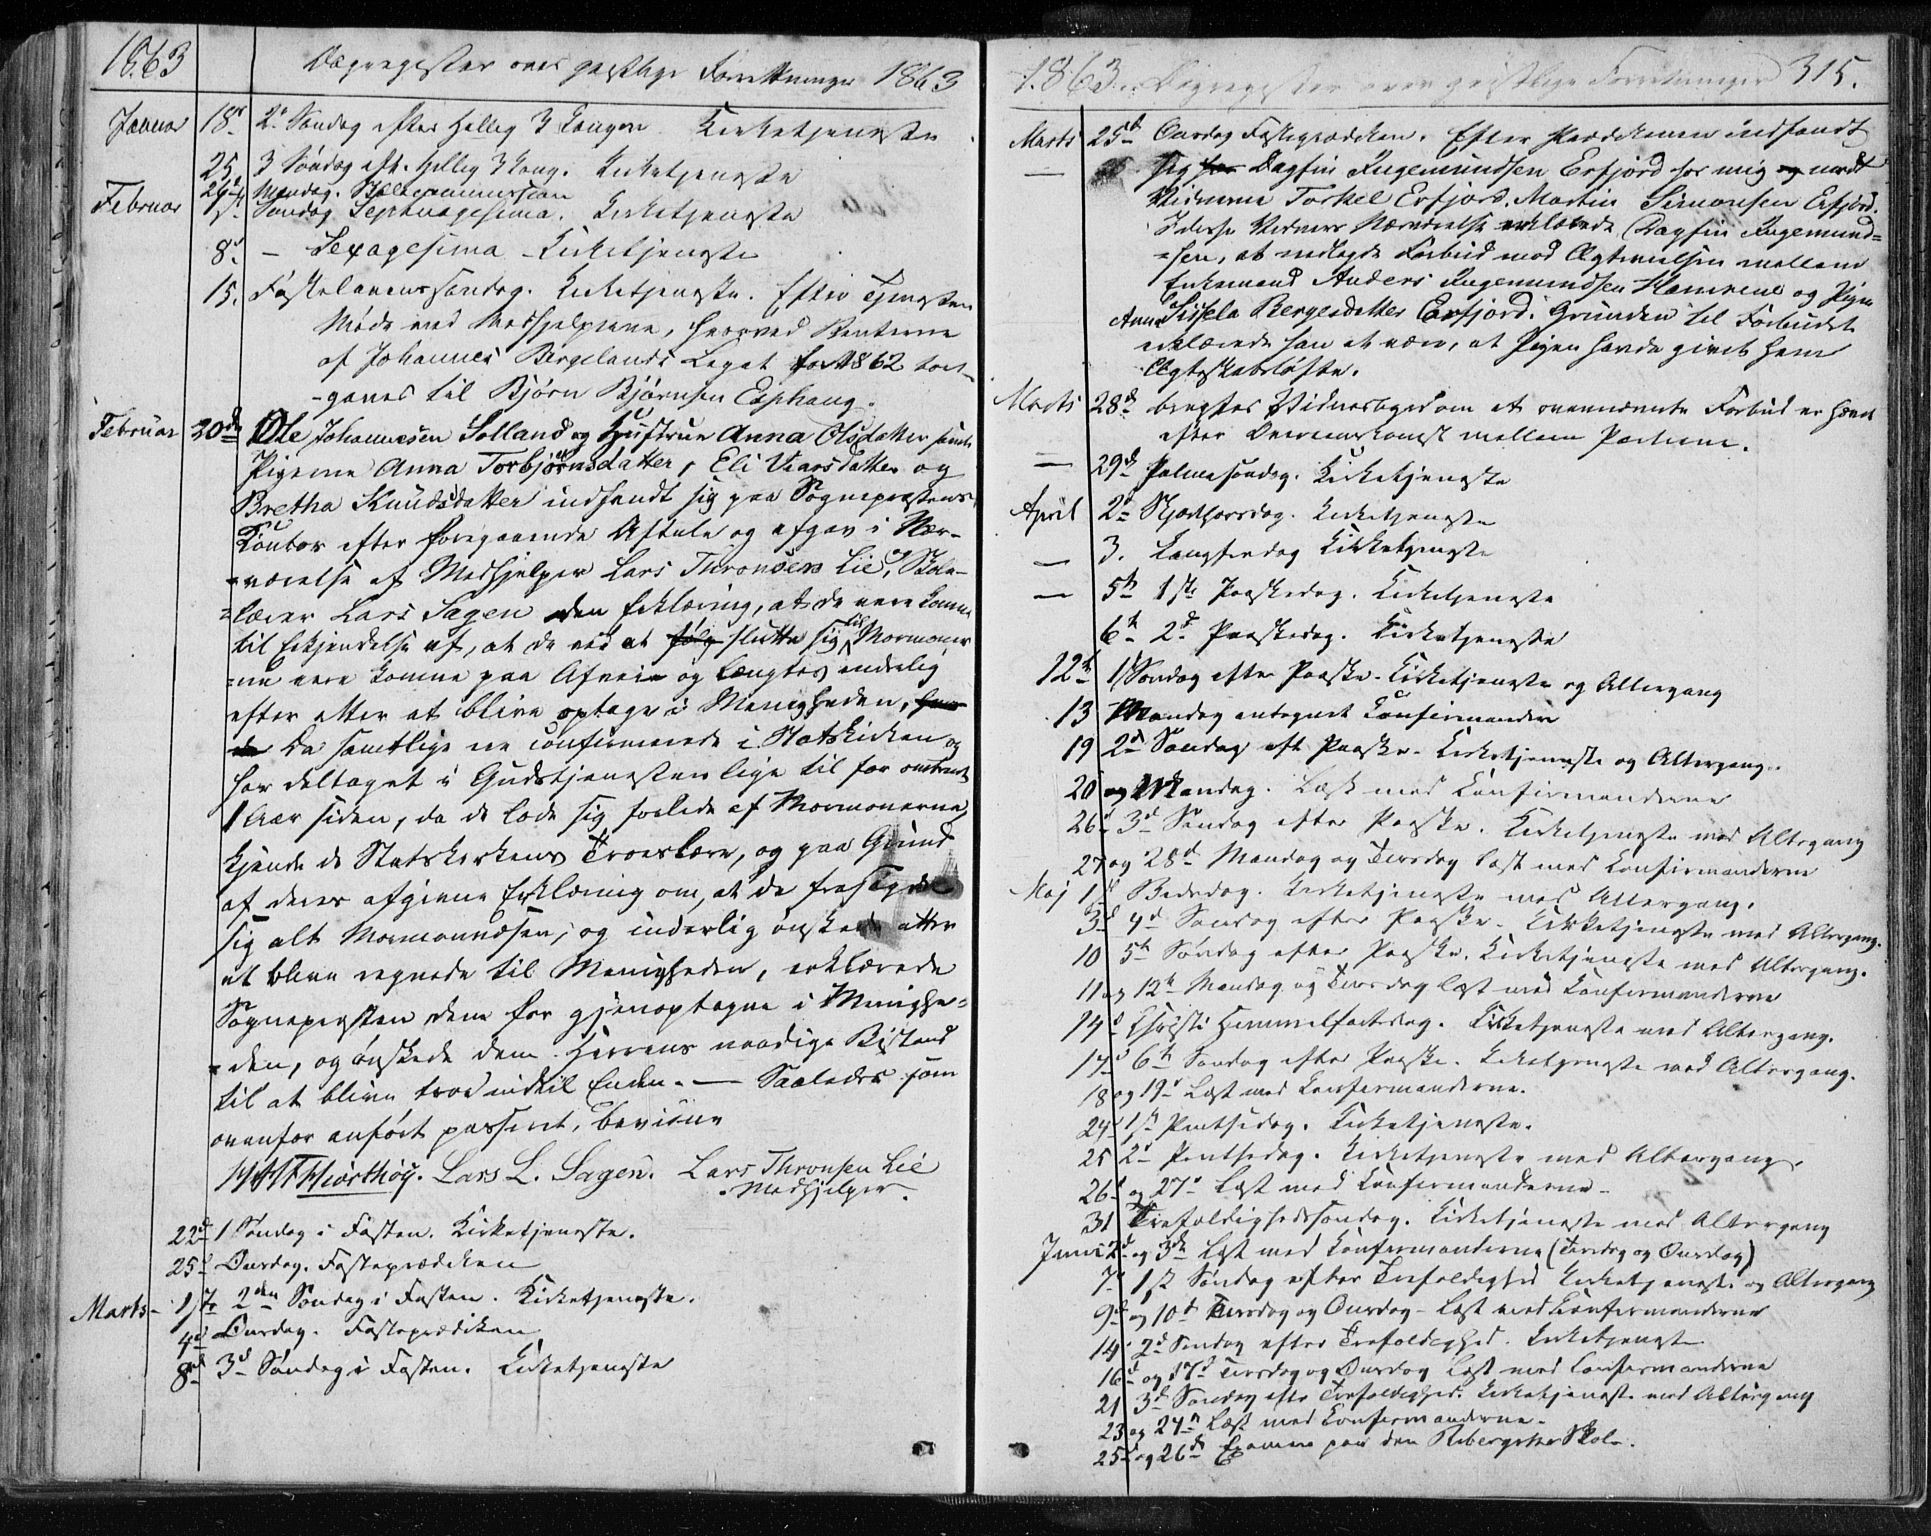 1863 Dagregister over geistlige Forretninger 1863
Januar 18d 2d Søndag efter Hellig 3 Konger Kirketjeneste
25. 3 Søndag eft. Hellig 3 Kong. Kirketjeneste
26d Mandag. Skolecommission
Februar 1ste Søndag Septuagesima. Kirketjeneste
8d – Sexagesima Kirketjeneste
15. Fastelavenssøndag. Kirketjeneste. Efter Tjenesten
Møde med Medhjelperne, hvorved Renterne
af Johannes Bergelands Legat for 1862 bort-
-gaves til Bjørn Bjørnsen Esphaug.
Februar 20de Ole Johannesen Solland og Hustrue Anna Olsdatter samt
Pigerne Anna Torbjørnsdatter, Eli Vearsdatter og
Bretha Knudsdatter indfandt sig paa Sognepræstens
Contor efter foregaaende Aftale og afgav i Nær-
-værelse af Medhjelper Lars Thronsen Lie, og Skole-
=lærer Lars Sagen den Erklæring, at de vare komne
til Erkjendelse af, at de ved at følg slutte sig til Mormoner
=ne vare komne paa Afveie og længtes inderlig
efter atter at blive optagne i Menigheden,
Da samtlige ere confirmerede i Statskirken og
har deltaget i Gudstjenesten lige til for omtrent
1 Aar siden, da de lode sig forlede af Mormonerne,
kjende de Statskirkens Troeslære, og paa Grund
af deres afgivne Erklæring om, at de frasagde
sig alt Mormonvæsen, og inderlig ønskede atter
at blive regnede til Menigheden, erklærede
Sognepresten dem for gjenoptagne i Menighe-
-den, og ønskede dem Herrens naadige Bistand
til at blive troe indtil Enden. — Saaledes som
ovenfor anført passeret, bevidne
Hiorthøy. Lars L. Sagen. Lars Thronsen Lie
Medhjelper.
22d 1 Søndag i Fasten. Kirketjeneste.
25d Onsdag. Fasteprædiken
Marts – 1ste 2den Søndag i Fasten. Kirketjeneste.
4d Onsdag. Fasteprædiken
8d 3d Søndag i Fasten. Kirketjeneste
1863. Dagregister over geistlige Forretninger 315.
Marts 25d Onsdag Fasteprædiken. Efter Prædikenen indfandt
— sig for Dagfin Ingemundsen Erfjord for mig og medt
Vidnerne Torkel Erfjord, Martin Simonsen Erfjord.
I disse Vidners Nærværelse erklærede Dagfin Ingemund=
=sen, at nedlagde Forbud mod Ægtevielsen mellem
Enkemand Anders Ingemundsen Hamrene og Pigen
Anna Sissela Bergesdatter Erfjord. Grunden til Forbudet
erklærede han at være, at Pigen havde givet ham
Ægteskabsløfte.
Marts 28d bragtes Vidnesbyrd om at ovennævnte Forbud er hævet
efter Overenskomst mellem Parterne.
— 29d Palmesøndag. Kirketjeneste
April 2d Skjærthorsdag. Kirketjeneste
— 3. Langfredag Kirketjeneste
— 5te 1ste Paaskedag. Kirketjeneste
6te 2d Paaskedag. Kirketjeneste
12te 1 Søndag efter Paaske. Kirketjeneste og Altergang
13 Mandag antegnet Confirmander
19 2d Søndag eft Paaske. Kirketjeneste og Altergang.
20 og Mandag. Læst med Confirmanderne
26d 3d Søndag efter Paaske. Kirketjeneste med Altergang
27 og 28d Mandag og Tirsdag læst med Confirmanderne
Maj 1d Bededag. Kirketjeneste med Altergang.
3d 4d Søndag efter Paaske. Kirketjeneste med Altergang.
10 5te Søndag efter Paaske. Kirketjeneste med Altergang.
11 og 12te Mandag og Tirsdag læst med Confirmanderne
14d Christi Himmelfartsdag. Kirketjeneste med Altergang.
17d 6te Søndag efter Paaske. Kirketjeneste med Altergang.
18 og 19d Læst med Confirmanderne.
24d 1ste Pintsedag. Kirketjeneste.
25 2d Pintsedag. Kirketjeneste med Altergang.
26d og 27d læst med Confirmanderne.
31 Trefoldighedssøndag. Kirketjeneste med Altergang
Juni 2d og 3de læst med Confirmanderne (Tirsdag og Onsdag)
7d 1ste Søndag efter Trefoldighed Kirketjeneste og Altergang
9d og 10d Tirsdag og Onsdag – læst med Confirmanderne
14. 2d Søndag efter Trefoldighed. Kirketjeneste
16d og 17d Tirsdag og Onsdag læst med Confirmanderne
21 3d Søndag efter Trefoldighed. Kirketjeneste med Altergang
23 og 24d Læst med Confirmanderne.
25d og 26d Examen paa den Skole.